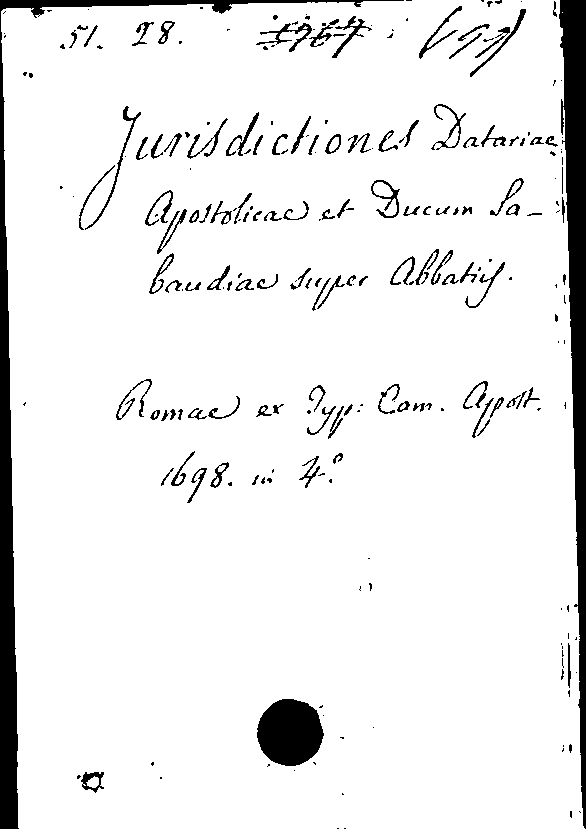 51. 28.
Jurisdictiones Datariae
Apostolicae et Ducum Sa-
baudiae super Abbatiis.
Romae ex Typ: Cam. Apost.
1698. in 4.º